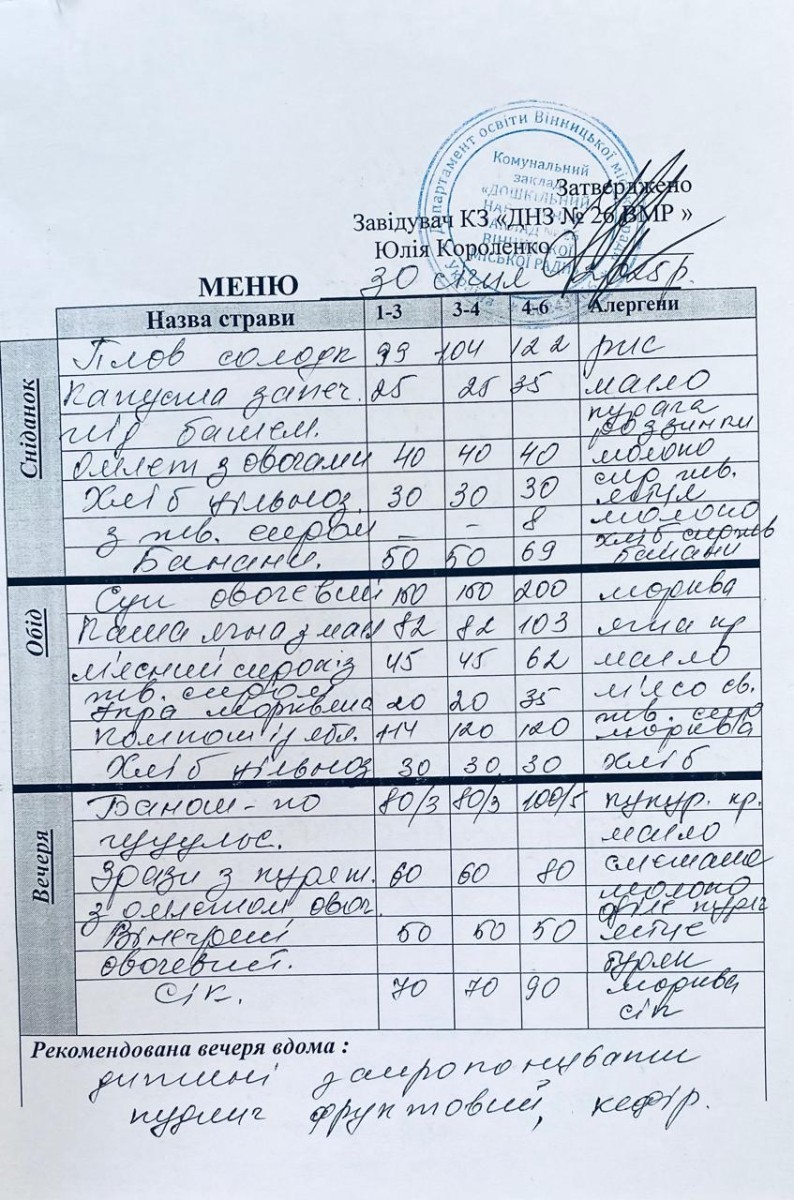 Департамент освіти Вінницької міс
Комунальний
заклад
«ДОШКІЛЬНИЙ
ВІННИЦЬКОЇ
МІСЬКОЇ РАДИ
Затверджено
Завідувач КЗ «ДНЗ № 26 ВМР »
Юлія Короленко
МЕНЮ 30 січня 2025р.
Назва страви 1-3 3-4 4-6 Алергени
Сніданок
Плов солодк 99 104 122 рис
Капуста запеч. 25 25 35 масло
під башем. курага родзинки
Омлет з овочами 40 40 40 молоко
Хліб цільноз. 30 30 30 сир тв. яйця
з тв. сиром - - 8 молоко
Банани. 50 50 69 хліб сир тв банани
Обід
Суп овочевий 150 150 200 морква
Каша ячна з мас 82 82 103 ячна кр
м'ясний сирок із 45 45 62 масло
тв. сиром м'ясо св.
Ікра морквяна 20 20 35 тв. сир
Компот із ябл. 114 120 120 морква
Хліб цільноз 30 30 30 хліб
Вечеря
Банош-по 80/3 80/3 100/5 кукур. кр.
гуцульс. масло
Зрази з куряч. 60 60 80 сметана
з омлетом овоч. молоко філе куряч
Вінегрет 50 50 50 яйце
овочевий. буряк
Сік. 70 70 90 морква
сік
Рекомендована вечеря вдома :
дитині запропонувати
пудинг фруктовий, кефір.